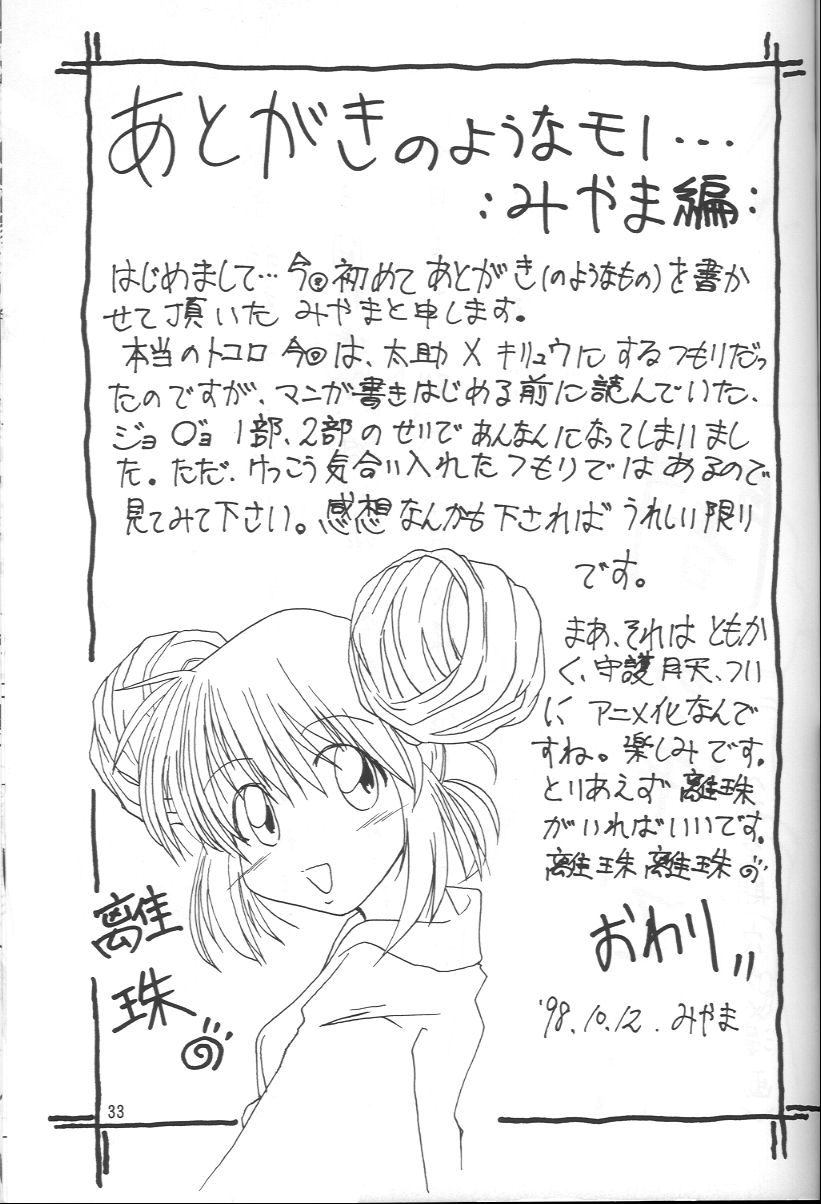 あとがきのようなモノ…
:みやま編:
はじめまして…今回初めて あとがき(のようなもの)を書か
せて頂いた みやまと申します。
本当のトコロ 今回は、太助×キリュウにするつもりだっ
たのですが、マンガ書きはじめる前に読んでいた、
ジョ○ョ 1部、2部のせいであんなんになってしまいまし
た。ただ、けっこう気合い入れたつもりではあるので
見てみて下さい。感想なんかも下さればうれしい限り
です。
まあ、それはともか
く、守護月天、つい
に アニメ化なんで
すね。楽しみです。
とりあえず 離珠
がいればいいです。
離珠 離珠
おわり
'98.10.12. みやま
離
珠
33